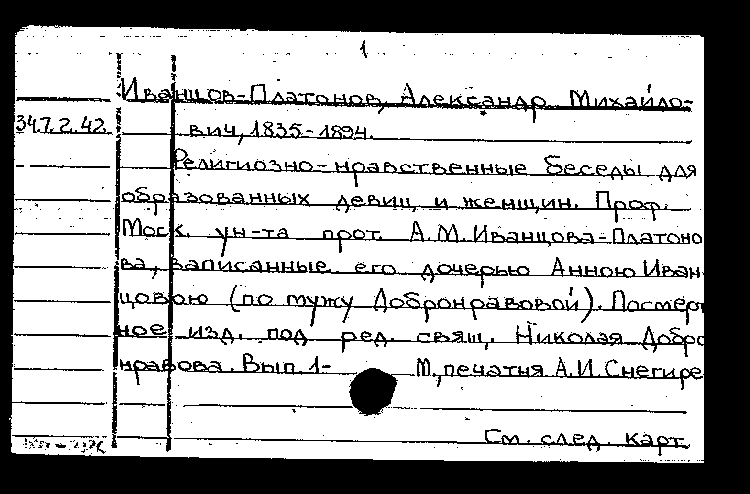 1
Иванцов-Платонов, Александр Михайло-
34.7.2.42. вич, 1835-1894.
Религиозно-нравственные беседы для
образованных девиц и женщин. Проф.
Моск. ун-та прот. А.М.Иванцова-Платоно
ва, записанные его дочерью Анною Иван
цовою (по мужу Добронравовой). Посмерт
ное изд. под ред. свящ. Николая Добро
нравова. Вып. 1- М., печатня А.И. Снегире
См. след. карт.